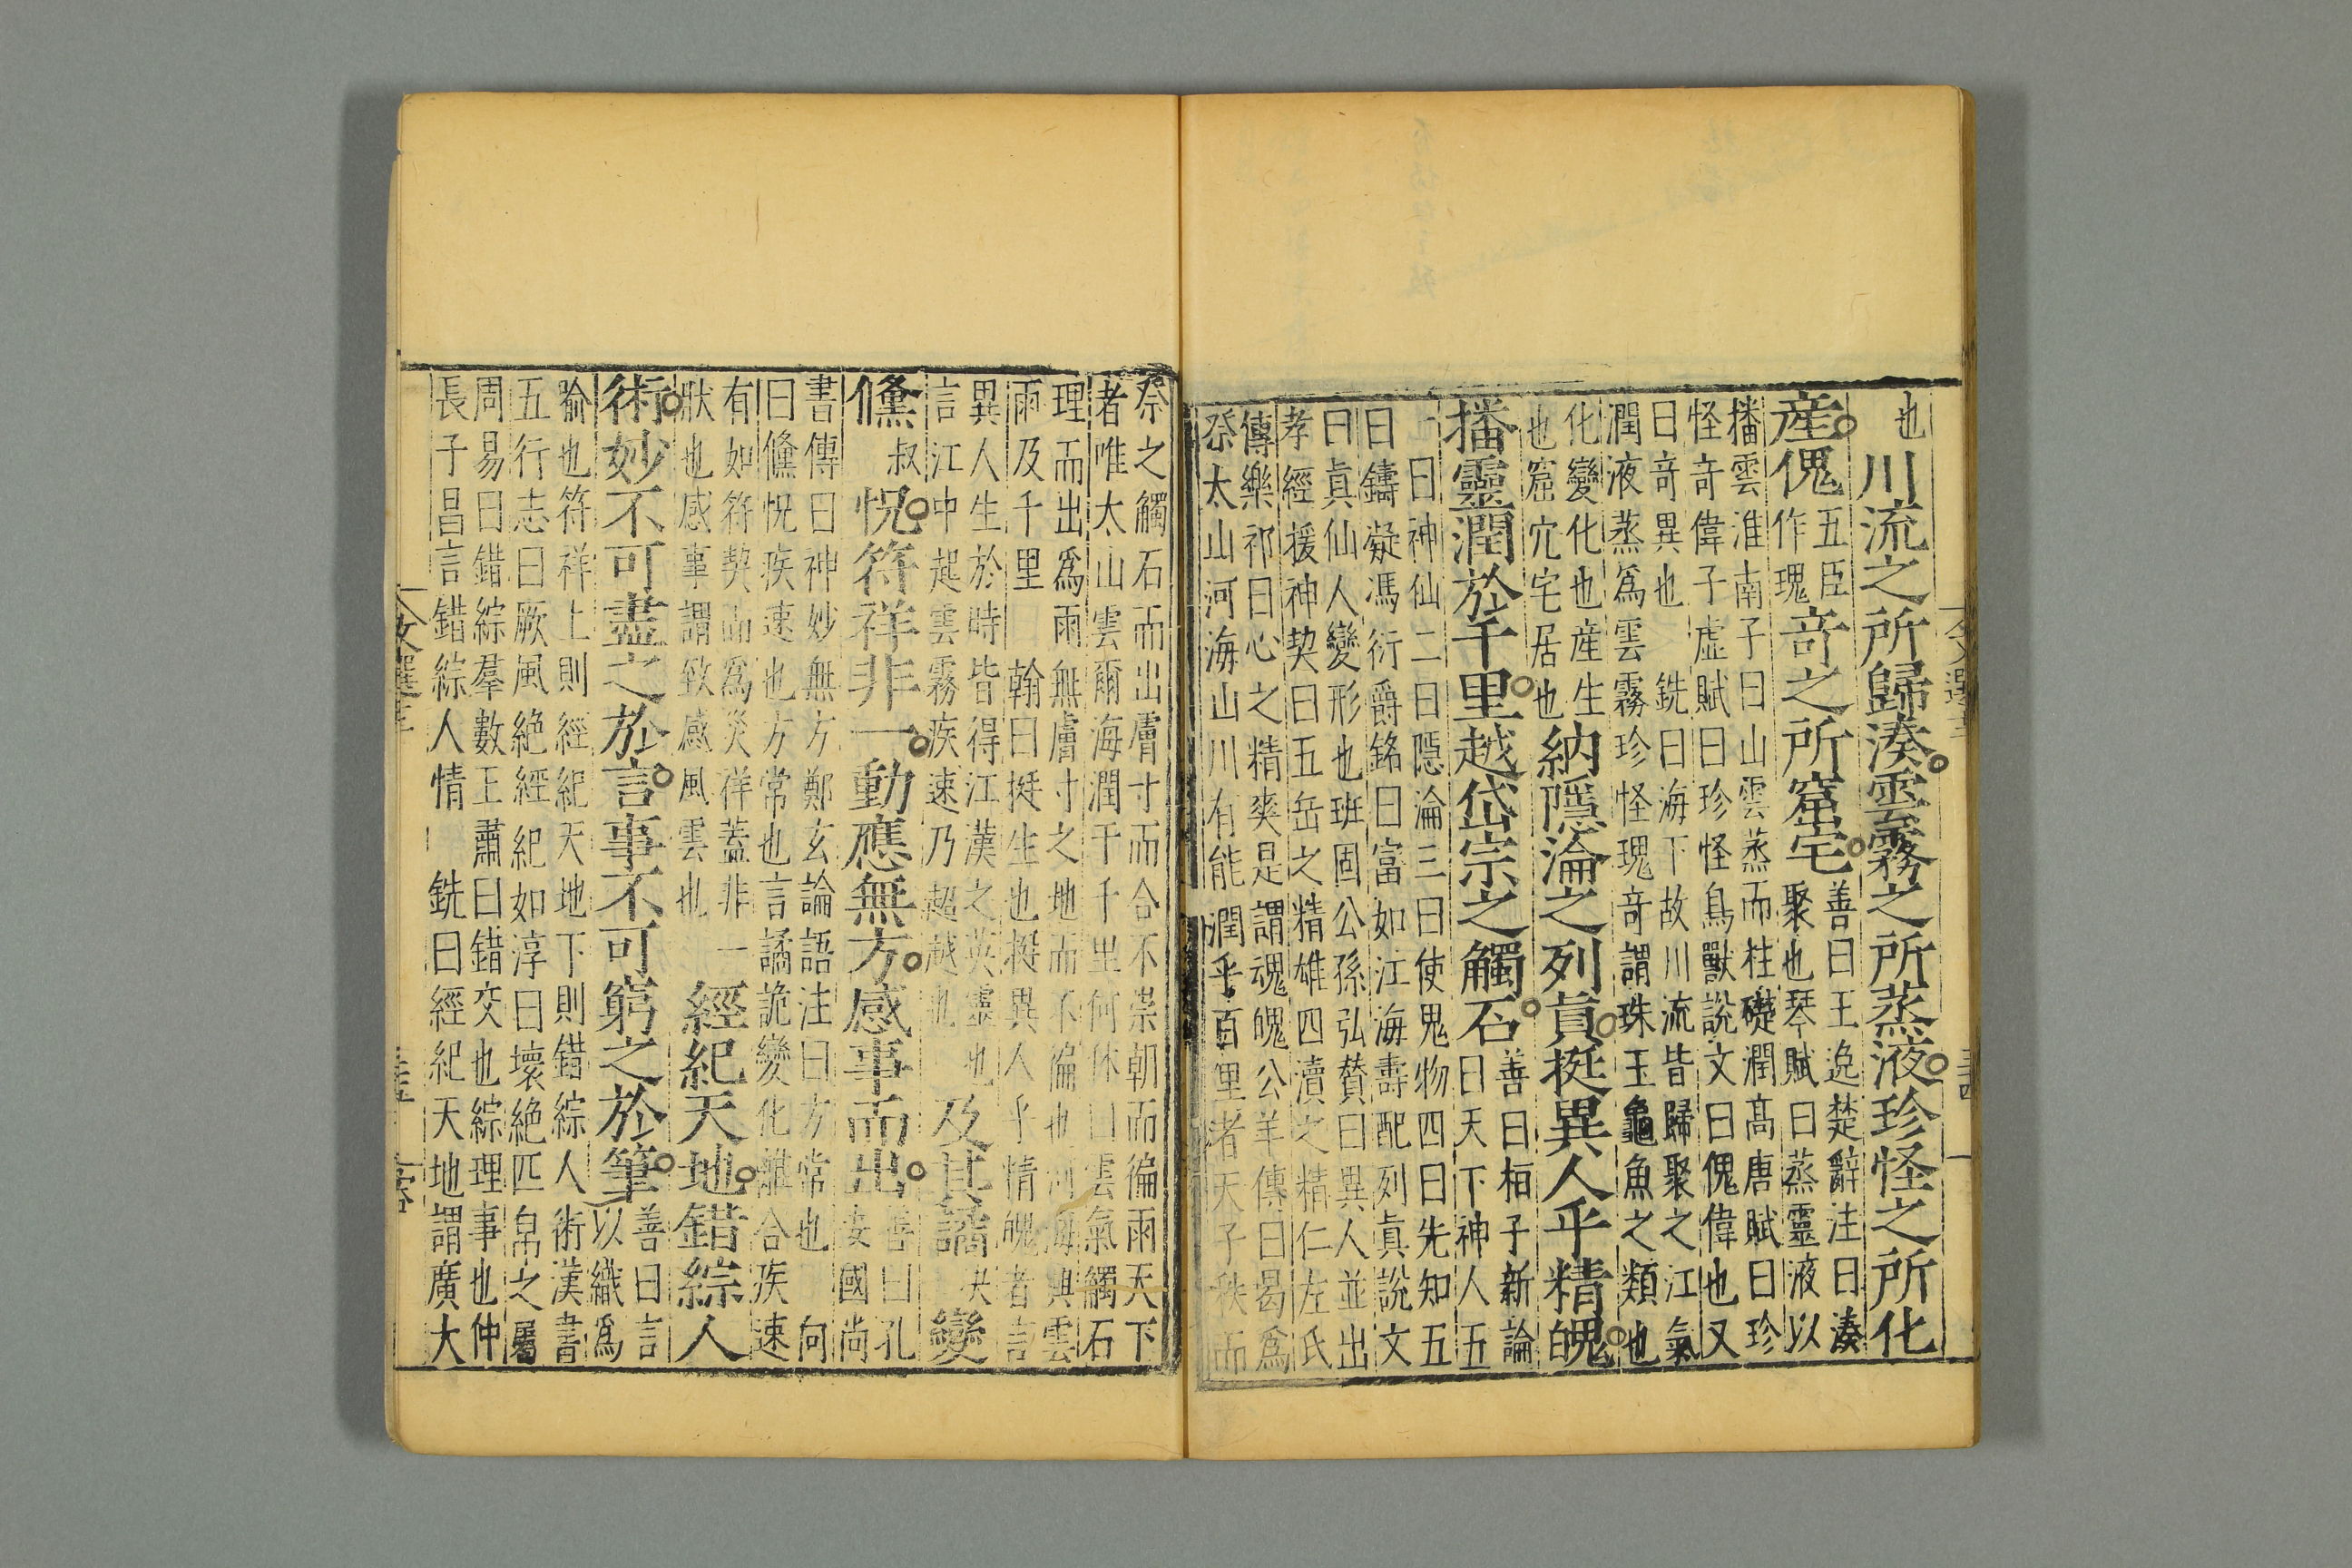 也川流之所歸湊雲霧之所蒸液珍怪之所化
産傀五臣作瑰奇之所窟宅善曰王逸楚辭注曰湊聚也琴賦曰蒸靈液以
播雲淮南子曰山雲蒸而柱礎潤高唐賦曰珍
怪奇偉子虛賦曰珍怪鳥獸說文曰傀偉也又
曰奇異也 銑曰海下故川流皆歸聚之江氣
潤液蒸爲雲霧珍怪瑰奇謂珠玉龜魚之類也
化變化也産生也窟穴宅居也納隱淪之列眞挺異人乎精魄
播靈潤於千里越岱宗之觸石善曰桓子新論曰天下神人五
一曰神仙二曰隱淪三曰使鬼物四曰先知五
曰鑄凝馮衍爵銘曰富如江海壽配列眞說文
曰眞仙人變形也班固公孫弘贊曰異人並出
孝經援神契曰五岳之精雄四瀆之精仁左氏
傳樂祁曰心之精爽是謂魂魄公羊傳曰曷爲
祭太山河海山川有能潤乎百里者天子秩而
祭之觸石而出膚寸而合不崇朝而徧雨天下
者唯太山雲爾海潤于千里何休曰雲氣觸石
理而出爲雨無膚寸之地而不徧也河海興雲
雨及千里 翰曰挺生也挺異人乎情魄者言
異人生於時皆得江漢之英靈也
言江中起雲霧疾速乃超越也及其譎決變
儵叔怳符祥非一動應無方感事而出善曰孔安國尚
書傳曰神妙無方鄭玄論語注曰方常也 向
曰儵怳疾速也方常也言譎詭變化離合疾速
有如符契而爲災祥蓋非一
狀也感事謂致感風雲也經紀天地錯綜人
術妙不可盡之於言事不可窮之於筆善曰言以織爲
喻也符祥上則經紀天地下則錯綜人術漢書
五行志曰厥風絶經紀如淳曰壞絶匹帛之屬
周易曰錯綜羣數王肅曰錯交也綜理事也仲
長子昌言錯綜人情 銑曰經紀天地謂廣大